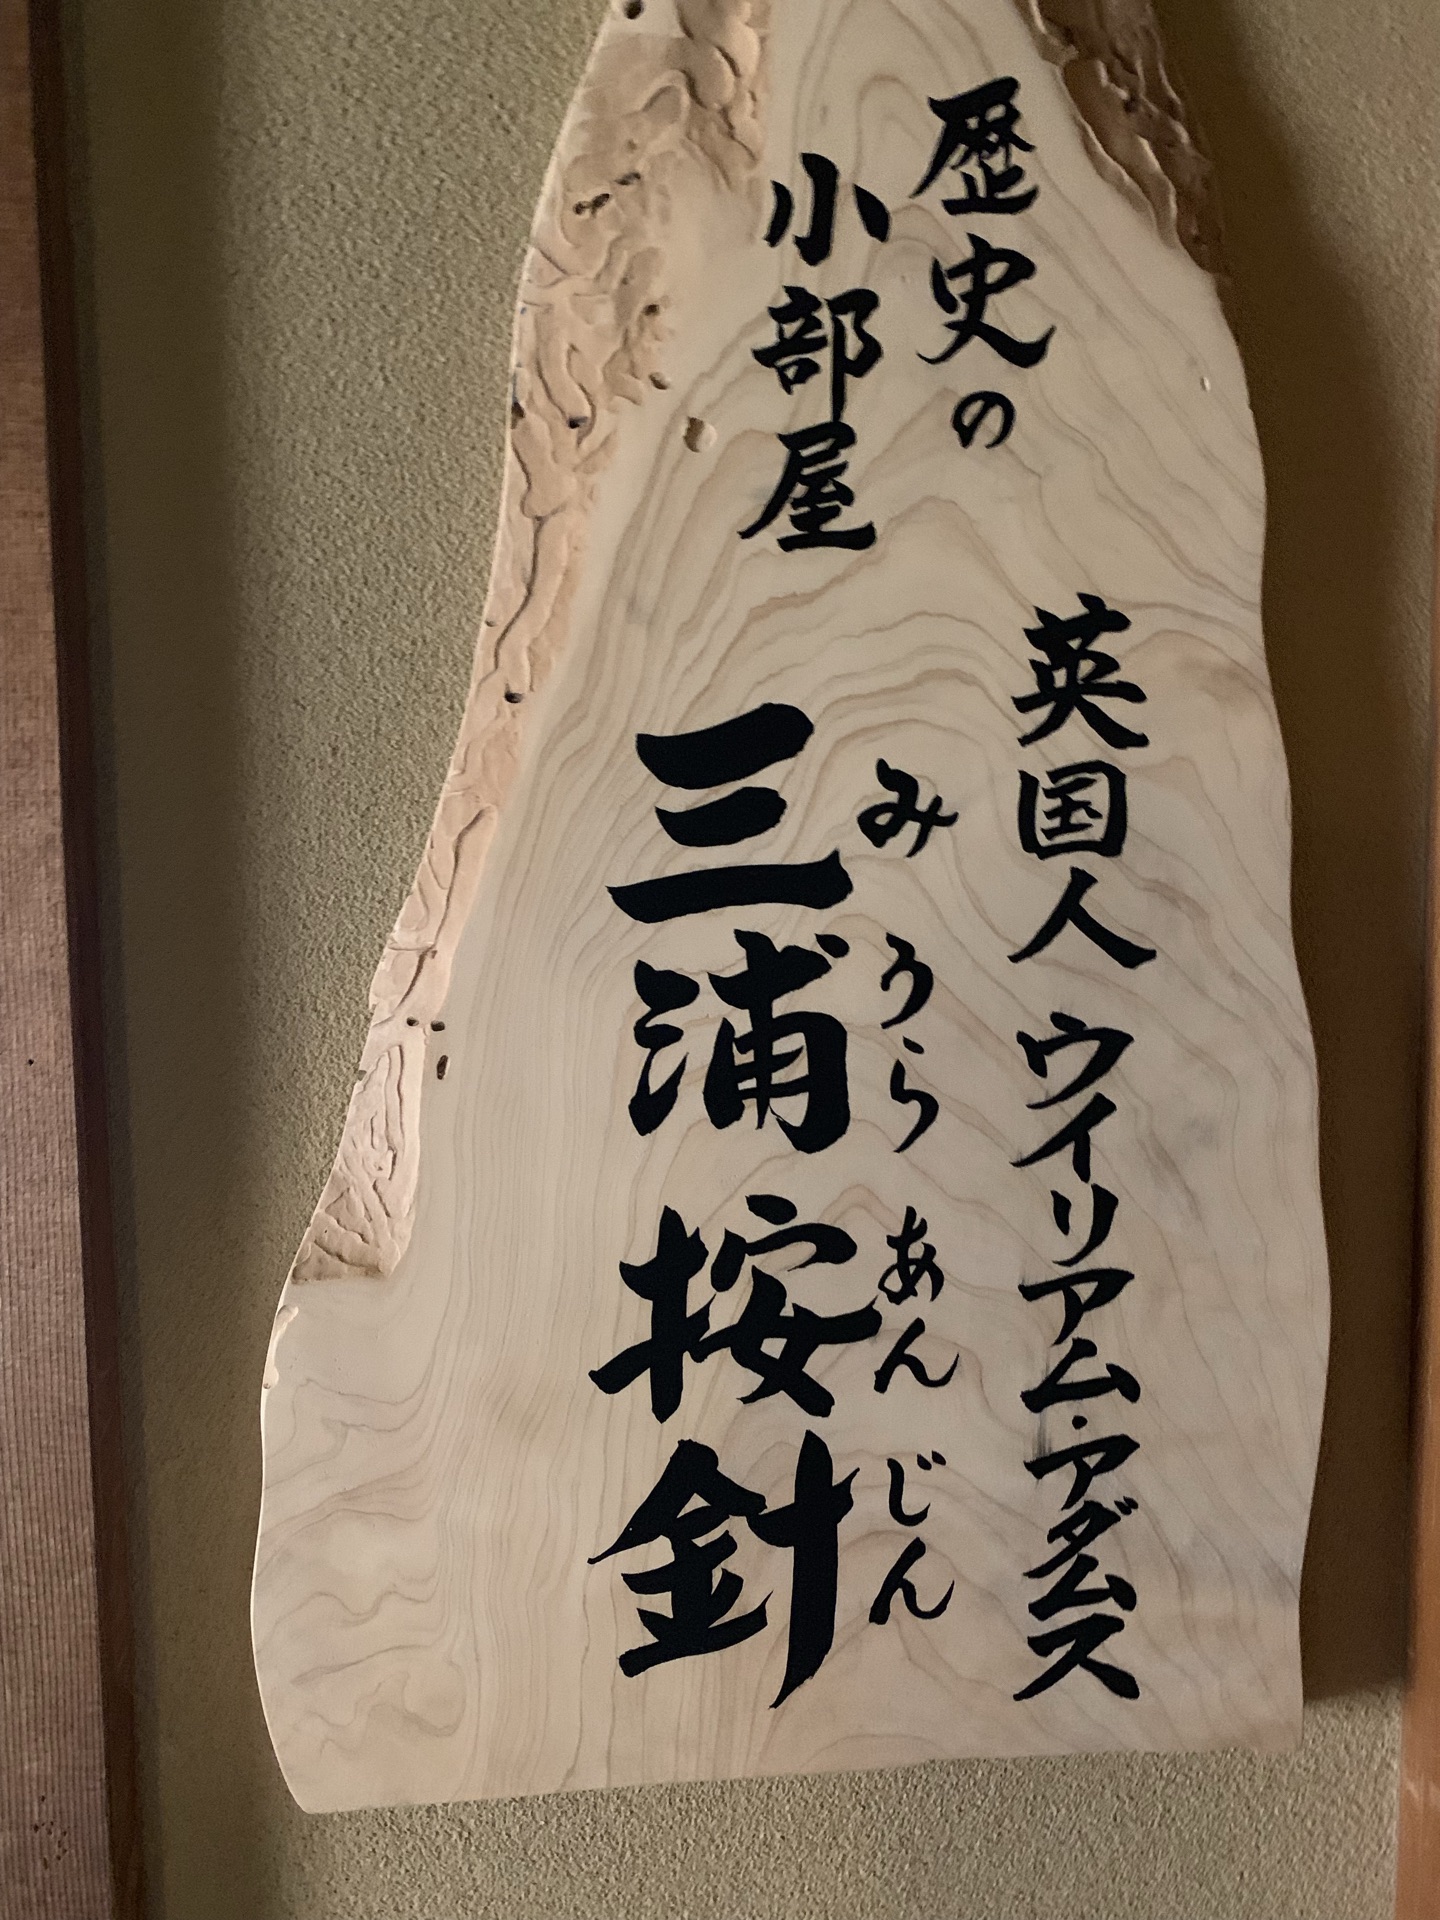 歴史の
小部屋
英国人 ウイリアム・アダムス
みうら あんじん
三浦按針